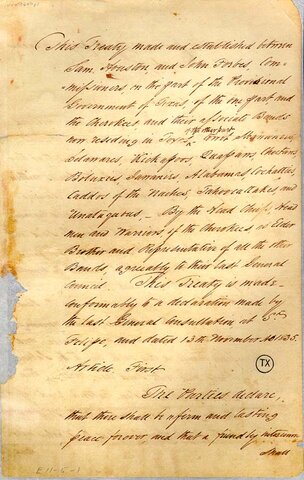 This Treaty made and established between
Sam. Houston, and John Forbes, Com-
missioners, on the part of the Provisional
Government of Texas, of the one part and
the Cherokees, and their associate Bands
now residing in Texas
of the other part
Shawnees,
Delawares, Kickapoos, Quapaws, Choctaws
Boluxies, Iawanies, Alabamas, Cochatties
Caddos of the Naches, Tahoocattakes, and
Unataguous,— By the Head Chiefs, Head
men and Warriors, of the Cherokees, as Elder
Brother and Representation of all the other
Bands, agreeably to their last General
Council. This Treaty is made
conformably to a declaration made by
the last General Consultation at St.
Felipe, and dated 13th November AD 1835.
Article First
The Parties declare,
that there shall be a firm and lasting
peace forever, and that a friendly intercourse
shall
TX
E11-5-1